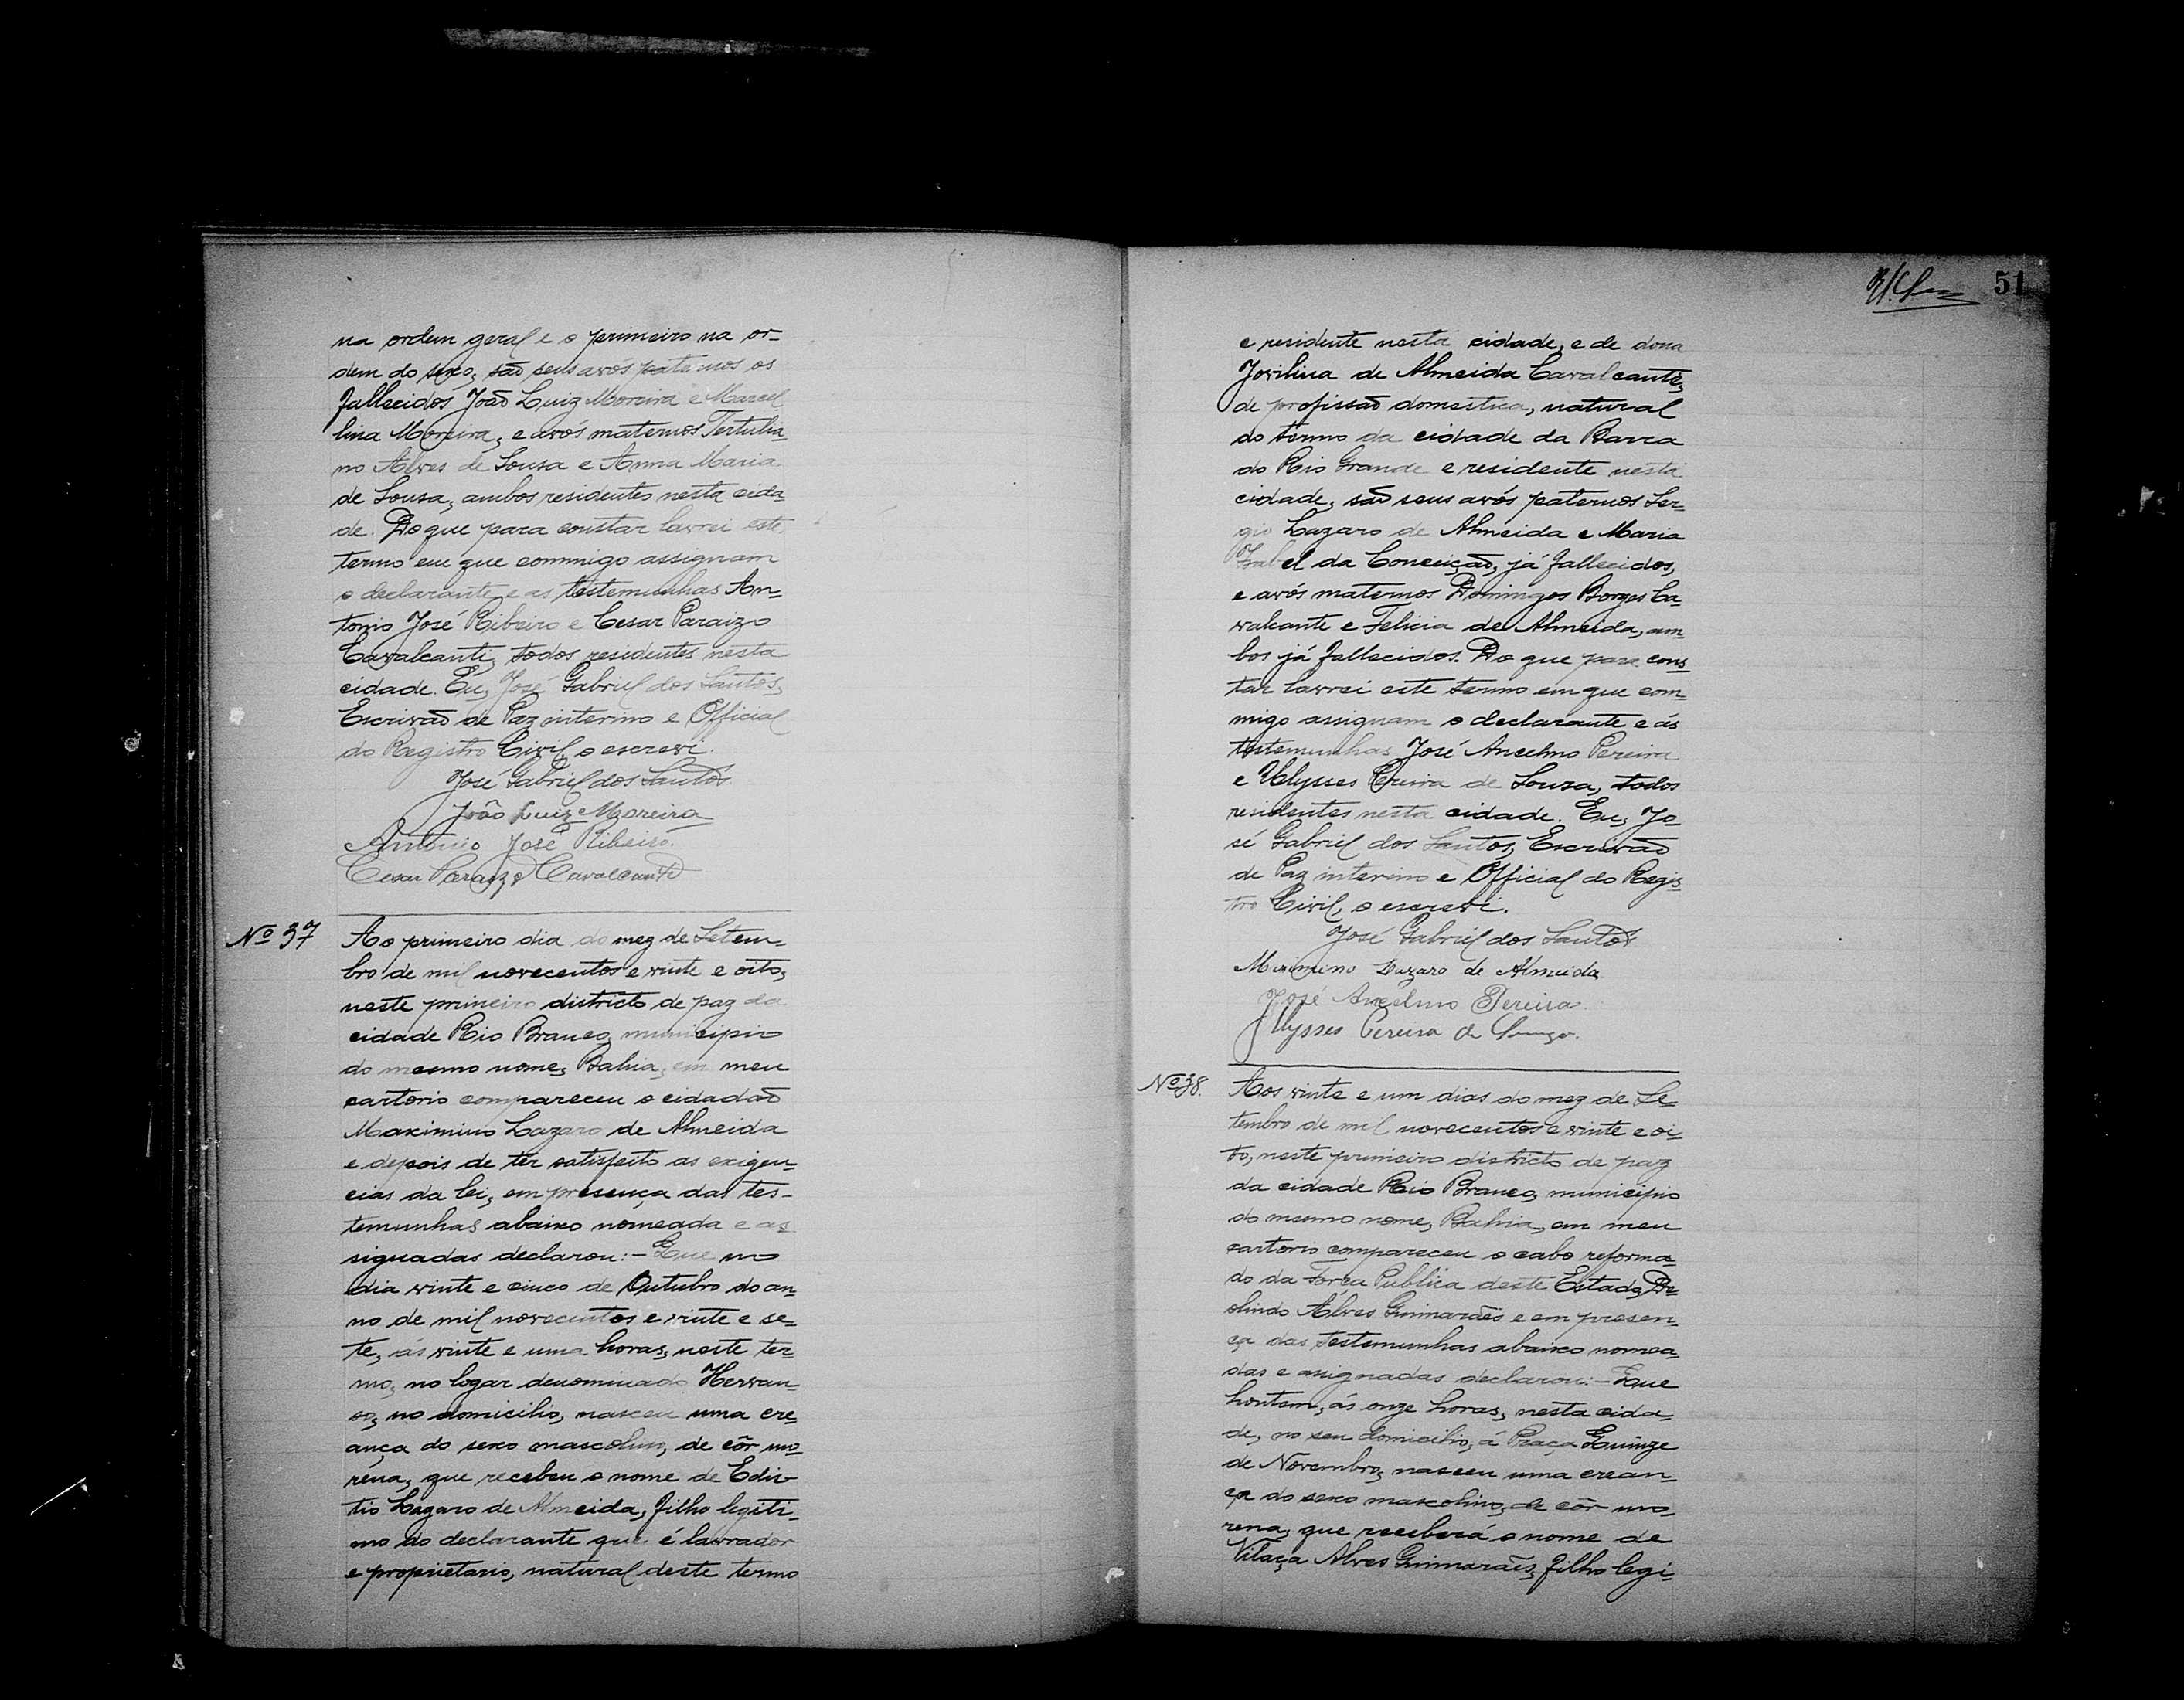 na ordem geral e o primeiro na or-
dem do sexo, são seus avós paternos os
fallecidos João Luiz Moreira e Marcel
lina Moreira, e avós maternos Tertulia
no Alves de Sousa e Anna Maria
de Sousa, ambos residentes nesta cida
de. Do que para constar lavrei este
termo em que commigo assignam
o declarante e as testemunhas An-
tonio José Ribeiro e Cesar Paraizo
Cavalcanti, todos residentes nesta
cidade. Eu, José Gabriel dos Santos,
Escrivão de Paz interino e Official
do Registro Civil, o escrevi.
José Gabriel dos Santos
João Luiz Moreira
Antonio José Ribeiro.
Cesar Paraizo Cavalcanti
Nº 37
Ao primeiro dia do mez de Setem-
bro de mil novecentos e vinte e oito,
neste primeiro districto de paz da
cidade Rio Branco, municipio
do mesmo nome, Bahia, em meu
cartorio compareceu o cidadão
Maximino Lazaro de Almeida
e depois de ter satisfeito as exigen-
cias da lei, em presença das tes-
temunhas abaixo nomeada e as
signadas declarou:- Que no
dia vinte e cinco de Outubro do an-
no de mil novecentos e vinte e se-
te, ás vinte e uma horas, neste ter-
mo, no logar denominado
no domicilio, nasceu uma cre-
ança do sexo mascolino, de côr mo-
rena, que recebeu o nome de Edis-
tio Lazaro de Almeida, filho legiti-
mo do declarante que é lavrador
e proprietario, natural deste termo
51
e residente nesta cidade, e de dona
Jovilina de Almeida Cavalcante,
de profissão domestica, natural
do termo da cidade da Barra
do Rio Grande e residente nesta
cidade, são seus avós paternos Ser-
gio Lazaro de Almeida e Maria
Izabel da Conceição, já fallecidos,
e avós maternos Domingos Borges Ca-
valcante e Felicia de Almeida, am-
bos já fallecidos. Do que para cons
tar lavrei este termo em que com-
migo assignam o declarante e ás
testemunhas José Ancelmo Pereira
e Ulysses Pereira de Souza, todos
residentes nesta cidade. Eu, Jo
sé Gabriel dos Santos, Escrivão
de Paz interino e Official do Regis
tro Civil, o escrevi.
José Gabriel dos Santos
Maximino Lazaro de Almeida
José Ancelmo Pereira.
Ulysses Pereira de Souza.
Nº 38.
Aos vinte e um dias do mez de Se-
tembro de mil novecentos e vinte e oi-
to, neste primeiro districto de paz
da cidade Rio Branco, municipio
do mesmo nome, Bahia, em meu
cartorio compareceu o cabo reforma-
do da Força Publica deste Estado, De-
olindo Alves Guimarães e em presen-
ça das testemunhas abaixo nomea-
das e assignadas declarou:- Que
hontem, ás onze horas, nesta cida-
de, no seu domicilio, á Praça Quinze
de Novembro, nasceu uma crean-
ça do sexo mascolino, de côr mo-
rena, que receberá o nome de
Vilaça Alves Guimarães, filho legi-